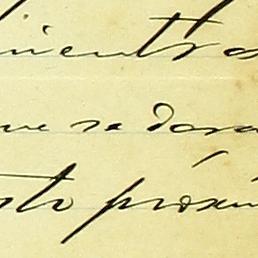 mientras
que se dará
sto próxim